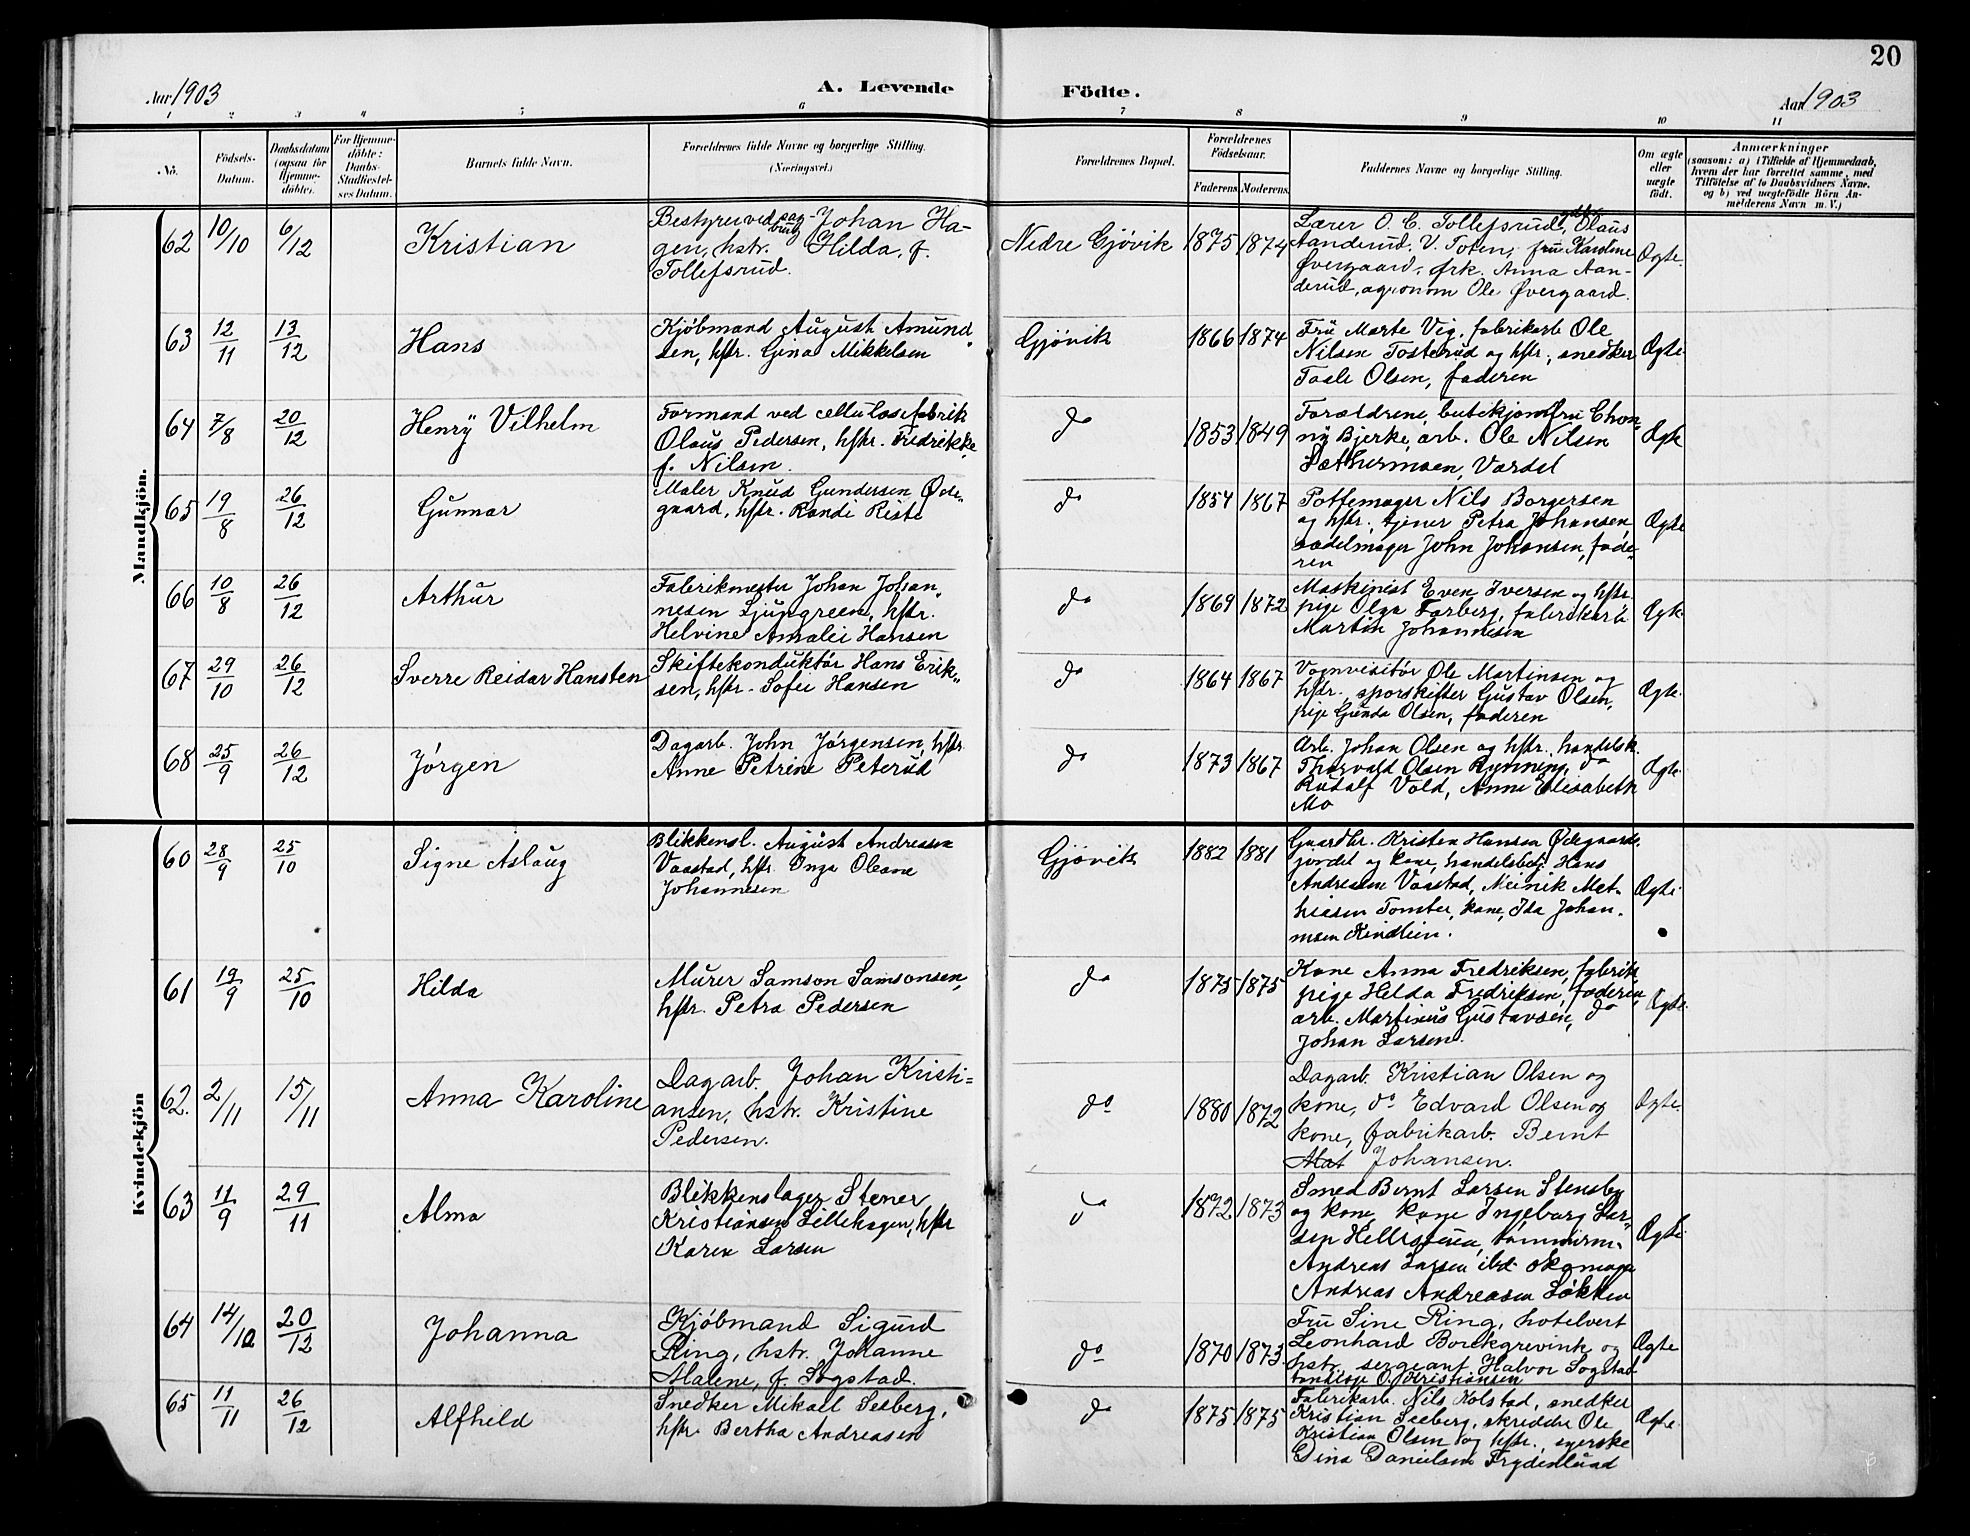 20
Aar 1903
A. Levende
Födte.
Aar 1903
1 2 3 4 5 6 7 8 9 10 11
No.
Födsels-
Datum.
Daabsdatum
(ogsaa for
Hjemme-
döbte).
For Hjemme-
döbte:
Daabs-
Stadfæstel-
ses Datum.
Barnets fulde Navn.
Forældrenes fulde Navne og borgerlige Stilling.
(Næringsvei.)
Forældrenes Bopæl.
Forældrenes
Födselsaar.
Faderens. Moderens.
Faddernes Navne og borgerlige Stilling.
Om ægte
eller
uægte
födt.
Anmærkninger
(saasom: a) i Tilfælde af Hjemmedaab,
hvem der har forrettet samme, med
Tilföielse af to Daabsvidners Navne,
og b) ved uægtefödte Börn An-
melderens Navn m. V.)
Mandkjön.
62 10/10 6/12 Kristian
Bestyrer ved sag-
brug Johan Ha-
gen, hstr. Hilda, f.
Tollefsrud.
Nedre Gjøvik 1875 1874
Lærer O. C. Tollefsrud, gdbr. Olaus
Aanderud, V. Toten, fru Karoline
Øvergaard, frk. Anna Aan-
derud, agronom Ole Øvergaard.
Ægte.
63 12/11 13/12 Hans
Kjøbmand August Amund-
sen, hstr. Gina Mikkelsen
Gjøvik 1866 1874
Fru Marte Vig, fabrikarb Ole
Nilsen Tosterud og hstr., snedker
Taale Olsen, faderen
Ægte.
64 7/8 20/12 Henry Vilhelm
Formand ved cellulosefabrik
Olaus Pedersen, hstr. Fredrikke
f. Nilsen.
do 1853 1849
Forældrene, butikjomfru Chon-
ny Bjerke, arb. Ole Nilsen
Vardal
Ægte
65 19/8 26/12 Gunnar
Maler Knud Gundersen Øde-
gaard, hstr. Randi Riste
do 1854 1867
Pottemager Nils Borgersen
og hstr., tjener Petra Johansen,
sadelmager John Johansen, fade-
ren
Ægte
66 10/8 26/12 Arthur
Fabrikmester Johan Johan-
nesen Ljungreen, hstr.
Helvine Amalie Hansen
do 1869 1872
Maskinist Even Iversen og hstr.
pige Olga Farberg, fabrikarb
Martin Johannesen
Ægte.
67 29/10 26/12 Sverre Reidar Hansten
Skiftekonduktør Hans Erik-
sen, hstr. Sofie Hansen
do 1864 1867
Vognvisitør Ole Martinsen og
hstr., sporskifter Gustav Olsen,
pige Gunda Olsen, faderen
Ægte.
68 25/9 26/12 Jørgen
Dagarb. John Jørgensen, hstr.
Anne Petrine Peterud
do 1873 1867
Arb. Johan Olsen og hstr., handelsk.
Thorvald Olsen Rynning, do
Rudolf Vold, Anne Elisabeth
Mo
Ægte.
Kvindekjön
60 28/9 25/10 Signe Aslaug
Blikkensl. August Andreasen
Vaastad, hstr. Inga Oleane
Johannesen
Gjøvik 1882 1881
Gaardbr. Kristen Hansen Ødegaards-
jordet og kone, handelsbetj. Hans
Andreasen Vaastad, Meinik Mat-
hiasen Tomter, kone, Ida Johan-
nesen Kindlien.
Ægte
61 19/9 25/10 Hilda
Murer Samson Samsonsen,
hstr. Petra Pedersen
do 1875 1875
Kone Anna Fredriksen, fabrik
pige Hilda Fredriksen, faderen,
arb. Martinus Gustavsen, do
Johan Larsen.
Ægte.
62. 2/11 15/11 Anna Karoline
Dagarb. Johan Kristi-
ansen, hstr. Kristine
Pedersen.
do 1880 1872
Dagarb. Kristian Olsen og
kone, do Edvard Olsen og
kone, fabrikarb. Bernt
Mat Johansen.
Ægte.
63 11/9 29/11 Alma
Blikkenslager Stener
Kristiansen Lillehagen, hstr
Karen Larsen
do 1872 1873
Smed Bernt Larsen Stensby
og kone, kone Ingeborg Lar-
sen Hellestuen, tømmerm.
Andreas Larsen ibd. skomager
Andreas Andreasen Løkken
Ægte.
64 14/10 20/12 Johanna
Kjøbmand Sigurd
Ring, hstr. Johanne
Malene, f. Sogstad.
do 1870 1873.
Fru Sine Ring, hotelvert
Leonhard Borckgrevink og
hstr, sergeant Halvor Sogstad
O. Kristiansen
Ægte
65 11/11 26/12 Alfhild
Snedker Mikael Seeberg,
hstr. Bertha Andreasen
do 1875 1875
Fabrikarb. Nils Kolstad, snedker
Kristian Seeberg, skredder Ole
Kristian Olsen og hstr., syerske
Dina Danielsen Frydenlund
Ægte.